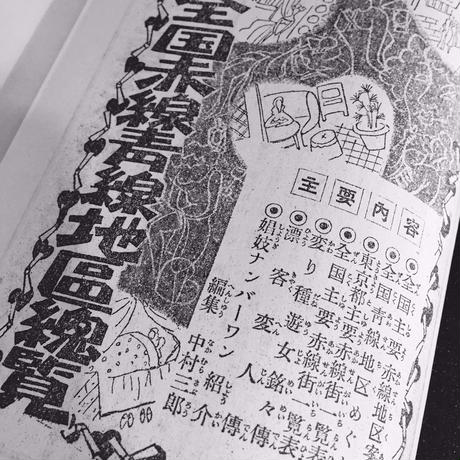 全国赤線青線地區總覧
主要内容
◉全国主要赤線地区案
◉全国青線地区めぐ
◉東京都主要赤線街一覧表
◉全国主要赤線街一覧表
◉変り種遊女銘々傳
◉漂客変人傳
◉娼妓ナンバーワン紹介
編集 中村三郎